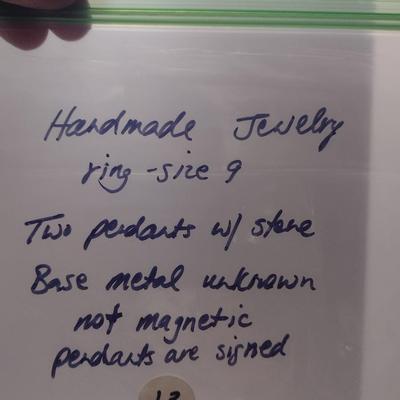 Handmade Jewelry
ring - size 9
Two pendants w/ stone
Base metal unknown
not magnetic
pendants are signed